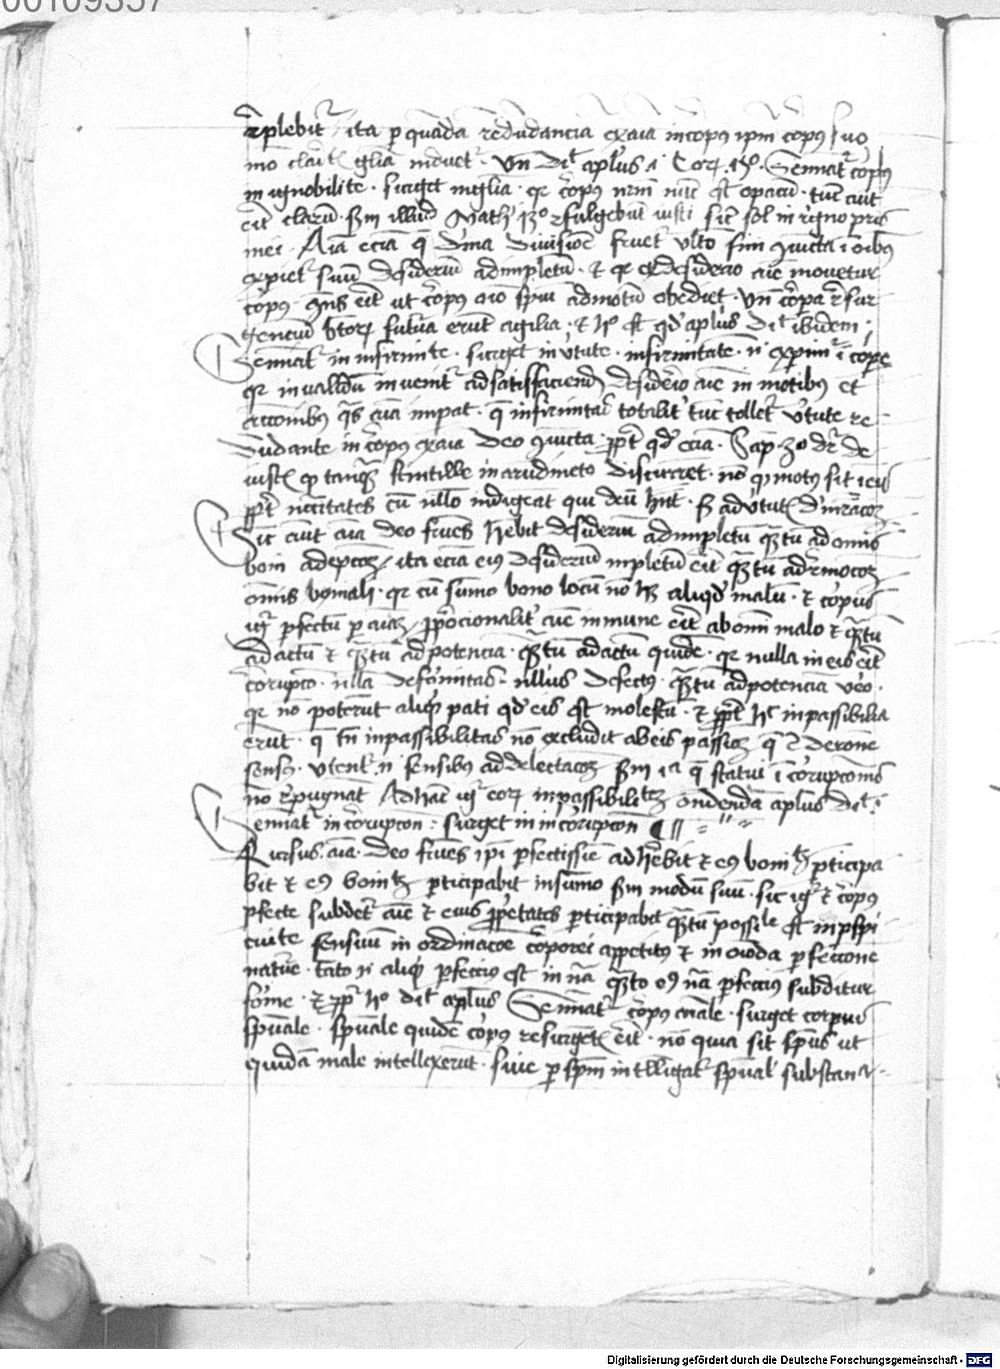 00109357
replebitr / ita p quada redudancia exaia in copus ipm copus suo
mo claritatis glia induetr . Vn dit aplus 1 Cor. 15º . Seminatr copus
in ignobilite . surget in glia . qr corpus nrm nuc est opacu . tuc aut
erit claru . Scdm illud Math 13º . fulgebut iusti sic sol in regno pris
mei . Aia ecia q diuina visione fruetr vlto fini coniucta i oibus
expietr suu desideriu adimpletu . et qr ex desiderio aie movetur
corpus . cosns erit ut corpus oio spui ad motu obediet . Vn corpa resur
genciu btorum futura erut agilia . et hoc est qd aplus dit ibidem :
Seminatr in infirmitate . surget in vtute . infirmitate . n expimr i corpe
qr invalidu invenitr ad satisfaciend desiderio aie in motibus et
accionibus qs aia impat . q infirmitas totalitr tuc tolletr vtute re
dundante in corpus exaia deo coniucta . ppt qd ecia . Sap . 3º dr de
iustis qp tanqua scintille in arudineto discurret . no qp motus sit i eis
ppt necitatem cu nllo indigeat qui deu hnt . s ad vtutis demracoem
Sic aut aia deo fruens hebit desideriu adimpletu qtu ad omnis
boni adepcoem / ita ecia eius desideriu impletu erit qtu ad remocoem
omis mali . qr cu sumo bono locu no hz aliqd malu . et corpus
igr pfectu p aiam / pporcionalitr aie inmune erit ab omi malo et qtu
ad actu et qtu ad potencia . qtu ad actu quide . qr nulla in eis erit
corupcio . nlla deformitas . nllus defectus . qtu ad potencia vero .
qr no poterut aliqd pati qd eis est molestu . et ppt hc inpassibilia
erut . q tn inpassibilitas no excludit ab eis passioem q e de rone
sensus . vtentr . n sensibus ad delectacoem scdm ia q statui icorupcionis
no repugnat Ad hac igr eorum inpassibilitatem ondenda aplus dit :
Seminatr in corupcoe : surget in incorupcoe
Rursus . aia . deo fruens ipi pfectissie adherebit et eius bonitatem pticipa
bit et eius bonitatem pticipabit in sumo scdm modu suu . sic igr et corpus
pfecte subdetr aie et eius ppetates pticipabit qtu possile est in pspi
cuitate sensuu in ordinacoe corporei appetitus et in oioda pfeccione
nature . tato n aliqd pfeccius est in na qto eius na pfeccius subditur
forme . et ppt hoc dit aplus Seminatr corpus aiale . surget corpus
spuale . spuale quide corpus resurgetis erit . no quia sit spus ut
quida male intellexerut . sive p spm intelligatr spual substan
Digitalisierung gefördert durch die Deutsche Forschungsgemeinschaft - DFG